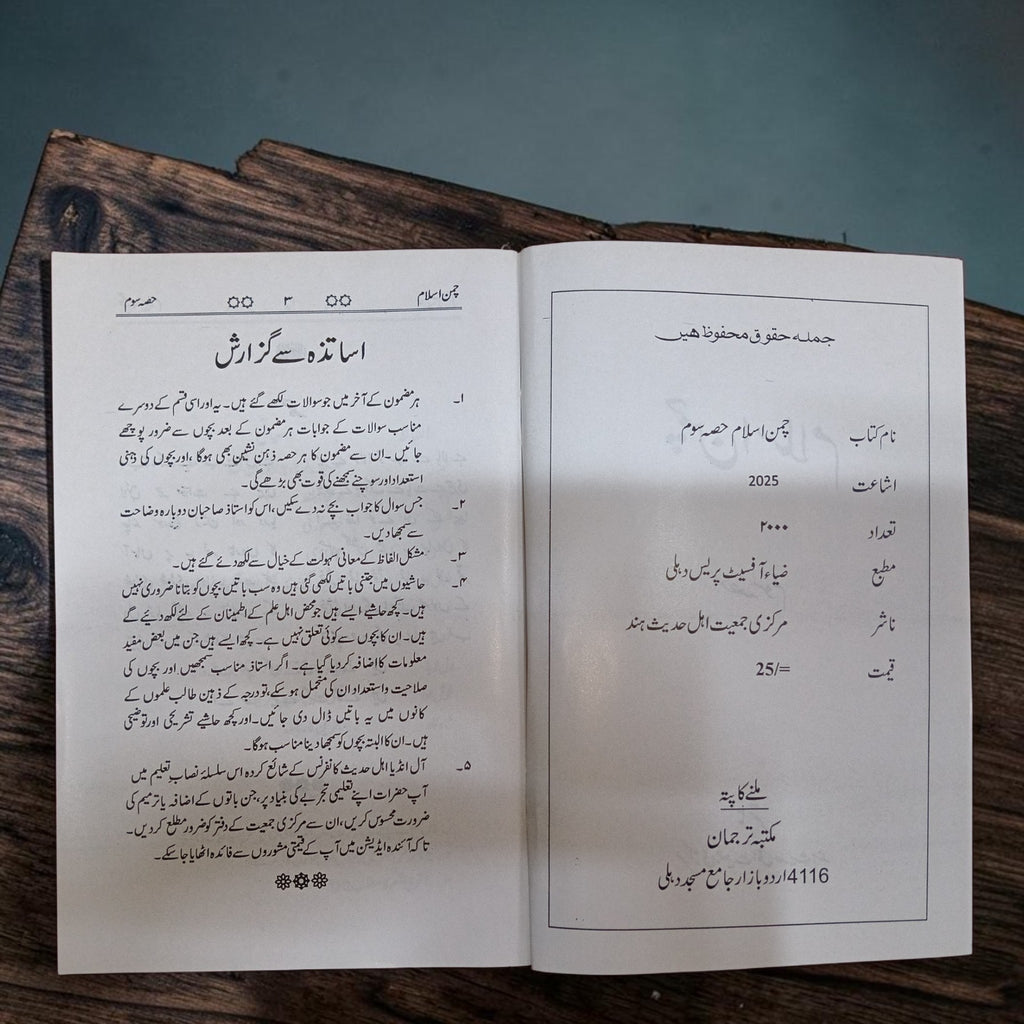 جملہ حقوق محفوظ ھیں
نام کتاب چمن اسلام حصہ سوم
اشاعت 2025
تعداد ۲۰۰۰
مطبع ضیاء آفسیٹ پریس دہلی
ناشر مرکزی جمعیت اہل حدیث ہند
قیمت 25/=
ملنے کا پتہ
مکتبہ ترجمان
4116 اردو بازار جامع مسجد دہلی
چمن اسلام ۳ حصہ سوم
اساتذہ سے گزارش
۱۔ ہر مضمون کے آخر میں جو سوالات لکھے گئے ہیں۔ یہ اور اسی قسم کے دوسرے
مناسب سوالات کے جوابات ہر مضمون کے بعد بچوں سے ضرور پوچھے
جائیں۔ ان سے مضمون کا ہر حصہ ذہن نشین بھی ہوگا، اور بچوں کی ذہنی
استعداد اور سوچنے سمجھنے کی قوت بھی بڑھے گی۔
۲۔ جس سوال کا جواب بچے نہ دے سکیں، اس کو استاذ صاحبان دوبارہ وضاحت
سے سمجھا دیں۔
۳۔ مشکل الفاظ کے معانی سہولت کے خیال سے لکھ دئے گئے ہیں۔
۴۔ حاشیوں میں جتنی باتیں لکھی گئی ہیں وہ سب باتیں بچوں کو بتانا ضروری نہیں
ہیں۔ کچھ حاشیے ایسے ہیں جو محض اہل علم کے اطمینان کے لئے لکھ دئیے گے
ہیں۔ ان کا بچوں سے کوئی تعلق نہیں ہے۔ کچھ ایسے ہیں جن میں بعض مفید
معلومات کا اضافہ کردیا گیا ہے۔ اگر استاذ مناسب سمجھیں اور بچوں کی
صلاحیت و استعداد ان کی متحمل ہو سکے، تو درجہ کے ذہین طالب علموں کے
کانوں میں یہ باتیں ڈال دی جائیں۔ اور کچھ حاشیے تشریحی اور توضیحی
ہیں۔ ان کا البتہ بچوں کو سمجھا دینا مناسب ہوگا۔
۵۔ آل انڈیا اہل حدیث کانفرنس کے شائع کردہ اس سلسلۂ نصاب تعلیم میں
آپ حضرات اپنے تعلیمی تجربے کی بنیاد پر، جن باتوں کے اضافہ یا ترمیم کی
ضرورت محسوس کریں، ان سے مرکزی جمعیت کے دفتر کو ضرور مطلع کردیں۔
تا کہ آئندہ ایڈیشن میں آپ کے قیمتی مشوروں سے فائدہ اٹھایا جا سکے۔